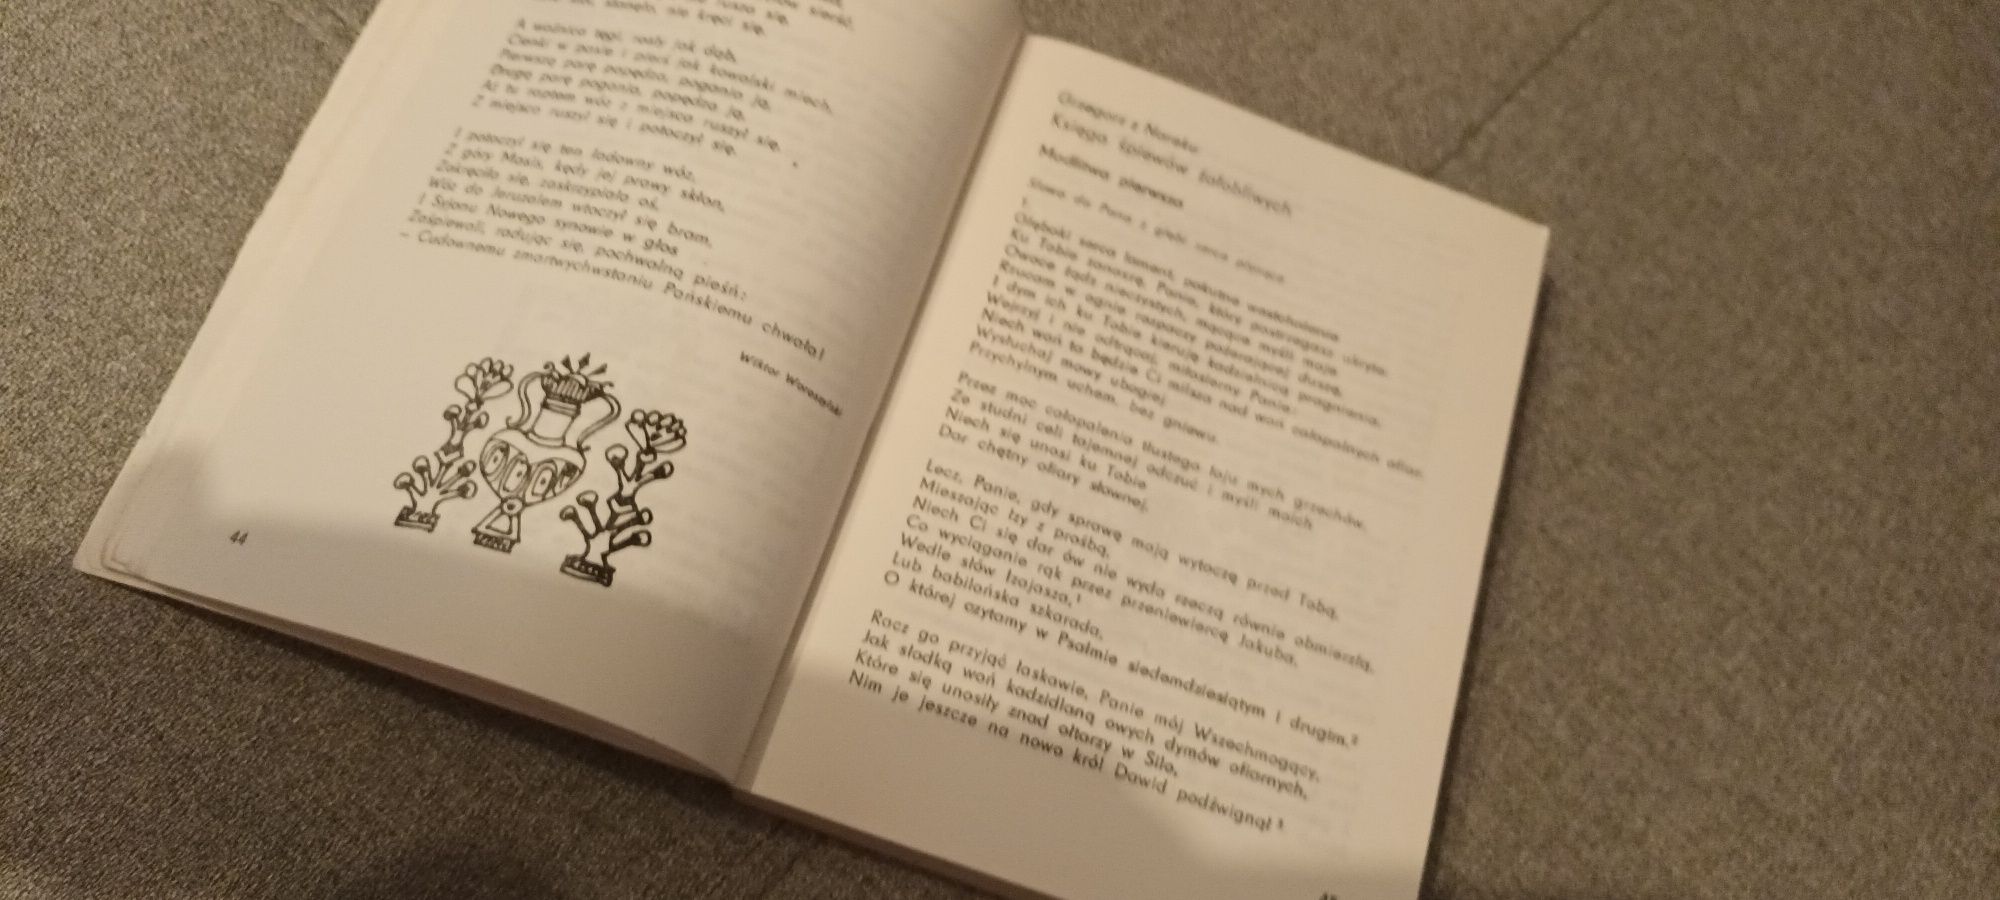 rusza się,
stanęło, nie kręci się.
A woźnica tęgi, rosły jak dąb,
Cienki w pasie i pierś jak kowalski miech,
Pierwszą parę popędza, pogania ją,
Drugą parę pogania, popędza ją,
Aż tu raptem wóz z miejsca ruszył się,
Z miejsca ruszył się i potoczył się.
I potoczył się ten ładowny wóz,
Z góry Masis, kędy jej prawy skłon,
Zakręciło się, zaskrzypiało oś,
Wóz do Jeruzalem wtoczył się bram,
I Syjonu Nowego synowie w głos
Zaśpiewali, radując się, pochwalną pieśń:
– Cudownemu zmartwychwstaniu Pańskiemu chwała!
Wiktor Woroszylski
44
Grzegorz z Nareku
Księga śpiewów żałobliwych
Modlitwa pierwsza
Słowo do Pana z głębi serca płynące
1.
Głęboki serca lament, pokutne westchnienia
Ku Tobie zanoszę, Panie, który postrzegasz ukryte.
Owoce żądz nieczystych, mącące myśli moje
Rzucam w ognie rozpaczy pożerającej duszę,
I dym ich ku Tobie kieruję kadzielnicą pragnienia.
Wejrzyj i nie odtrącaj, miłosierny Panie:
Niech woń ta będzie Ci milsza nad woń całopalnych ofiar.
Wysłuchaj mowy ubogiej
Przychylnym uchem, bez gniewu.
Przez moc całopalenia tłustego łoju mych grzechów,
Ze studni celi tajemnej odczuć i myśli moich
Niech się unosi ku Tobie
Dar chętny ofiary słownej.
Lecz, Panie, gdy sprawę moją wytoczę przed Tobą,
Mieszając łzy z prośbą,
Niech Ci się dar ów nie wyda rzeczą równie obmierzłą,
Co wyciąganie rąk przez przeniewiercę Jakuba,
Wedle słów Izajasza,¹
Lub babilońska szkarada,
O której czytamy w Psalmie siedemdziesiątym i drugim.²
Racz go przyjąć łaskawie, Panie mój Wszechmogący,
Jak słodką woń kadzidlaną owych dymów ofiarnych,
Które się unosiły znad ołtarzy w Silo,
Nim je jeszcze na nowo król Dawid podźwignął ³